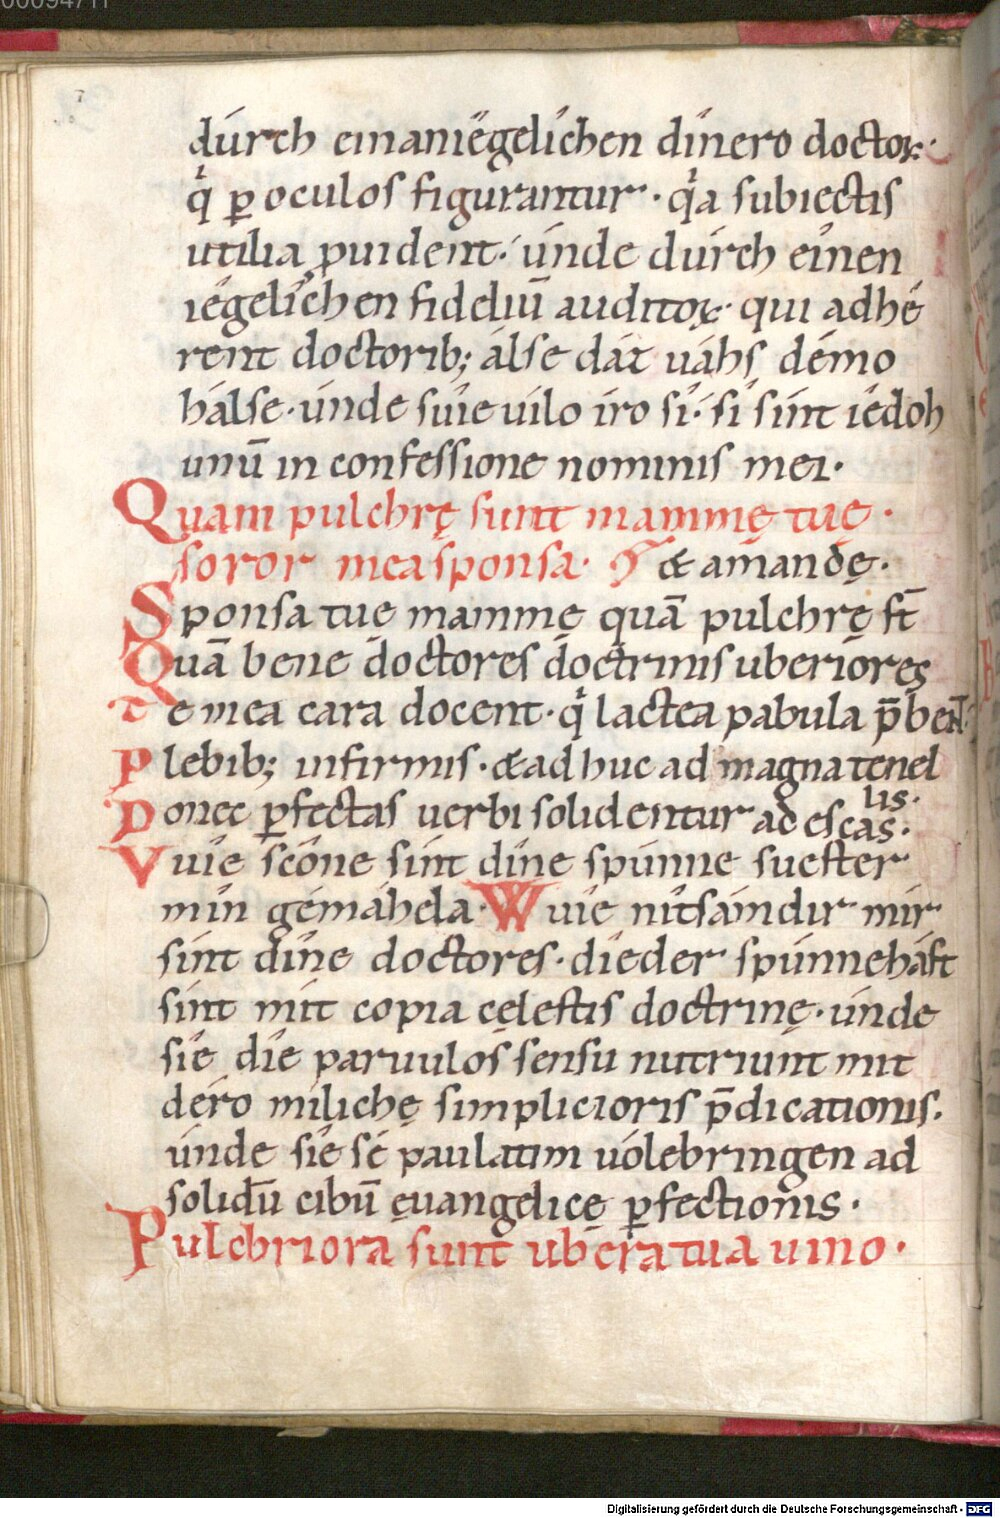 00094711
7
dúrch einaniégelichen dínero doctoꝝ·
q̇ ꝑ oculos figurantur · q̇a subiectis
utilia ꝓuident·́ únde dúrch eínen
iégelíchen fideliū auditoꝝ· qui adhę́
rent doctorib; álse dáz uáhs démo
hálse · únde suíe uílo íro sí·́ sí sínt iédoh
unū in confessione nominis mei·
Quam pulchrę sunt mammę tuę ·
soror mea sponsa· & amandę ·
Sponsa tue mamme quā pulchrę st̄
Quā bene doctores doctrinis uberiores
Te mea cara docent · q̇ lactea pabula p̄bent·
Plebib; infirmis · & ad huc ad magna tenel
lis·
Donec ꝑfectas uerbi solidentur ad escas·
Vuíe scóne sínt díne spúnne suéster
mín gémáhela · Wuíe nítsám dír mír
sínt díne doctores · díe der spúnneháft
sínt mít copia cęlestis doctrinę · únde
síe díe paruulos sensu nutriunt mít
déro míliche simplicioris p̄dicationis·
únde síe sé paulatim uólebringen ad
solidū cibū ęuangelicę ꝑfectionis ·
Pulchriora sunt ubera tua uino ·
Digitalisierung gefördert durch die Deutsche Forschungsgemeinschaft - DFG